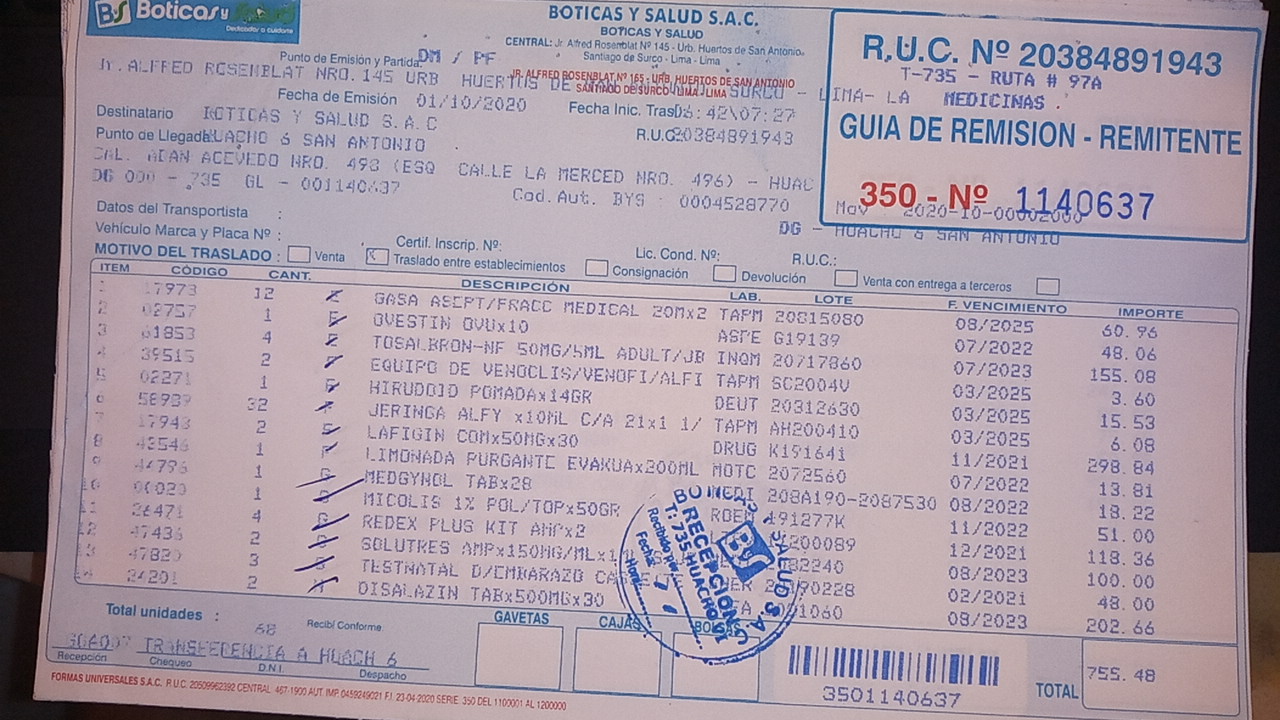 BS Boticas y Salud
Dedicados a cuidarte
BOTICAS Y SALUD S.A.C.
BOTICAS Y SALUD
CENTRAL: Jr. Alfred Rosenblat Nº 145 - Urb. Huertos de San Antonio
Santiago de Surco - Lima - Lima
JR. ALFRED ROSENBLAT Nº 165 - URB. HUERTOS DE SAN ANTONIO
SANTIAGO DE SURCO - LIMA - LIMA
R.U.C. Nº 20384891943
T-735 - RUTA # 97A
MEDICINAS .
GUIA DE REMISION - REMITENTE
350 - Nº 1140637
Punto de Emisión y Partida: DM / PF
Jr. ALFRED ROSENBLAT NRO. 145 URB HUERTOS DE SURCO - LIMA- LA
Fecha de Emisión 01/10/2020 Fecha Inic. Trasl 06:42\07:27
Destinatario BOTICAS Y SALUD S.A.C R.U.C. 20384891943
Punto de Llegada HUACHO 6 SAN ANTONIO
CAL. ADAN ACEVEDO NRO. 498 (ESQ CALLE LA MERCED NRO. 496) - HUAC
DG 000 - 735 GL - 001140637 Cod.Aut. BYS : 0004528770
DG - HUACHO 6 SAN ANTONIO
Datos del Transportista :
Vehículo Marca y Placa Nº : Certif. Inscrip. Nº: Lic. Cond. Nº: R.U.C.:
MOTIVO DEL TRASLADO : Venta Traslado entre establecimientos Consignación Devolución Venta con entrega a terceros
ITEM CÓDIGO CANT. DESCRIPCIÓN LAB. LOTE F. VENCIMIENTO IMPORTE
1 17973 12 GASA ASEPT/FRACC MEDICAL 20Mx2 TAPM 20815080 08/2025 60.96
2 02757 1 OVESTIN OVUx10 ASPE G19139 07/2022 48.06
3 61853 4 TOSALBRON-NF 50MG/5ML ADULT/JB INQM 20717860 07/2023 155.08
4 39515 2 EQUIPO DE VENOCLIS/VENOFI/ALFI TAPM SC2004V 03/2025 3.60
5 02271 1 HIRUDOID POMADAx14GR DEUT 20312630 03/2025 15.53
6 58939 32 JERINGA ALFY x10ML C/A 21x1 1/ TAPM AH200410 03/2025 6.08
7 17943 2 LAFIGIN COMx50MGx30 DRUG K191641 11/2021 298.84
8 43546 1 LIMONADA PURGANTE EVAKUAx200ML MOTC 2072560 07/2022 13.81
9 44796 1 MEDGYNOL TABx28 MEDI 208A190-2087530 08/2022 18.22
10 00020 1 MICOLIS 1% POL/TOPx50GR ROEM 491277K 11/2022 51.00
11 26471 4 REDEX PLUS KIT AMPx2 12/2021 118.36
12 47436 2 SOLUTRES AMPx150MG/MLx1 08/2023 100.00
13 47820 3 TESTNATAL D/EMBARAZO 02/2021 48.00
14 24201 2 DISALAZIN TABx500MGx30 08/2023 202.66
BOTICAS Y SALUD S.A.C.
BS
RECEPCION
T: 735-HUACHO
Recibido por:
Fecha:
Hora:
Total unidades : 68 Recibí Conforme GAVETAS CAJAS BOLSAS
TRANSFERENCIA A HUACH 6
Recepción Chequeo D.N.I. Despacho
3501140637
TOTAL 755.48
FORMAS UNIVERSALES S.A.C. R.U.C. 20509962392 CENTRAL 467-1900 AUT. IMP. 0459249021 F.I. 23-04-2020 SERIE. 350 DEL 1100001 AL 1200000